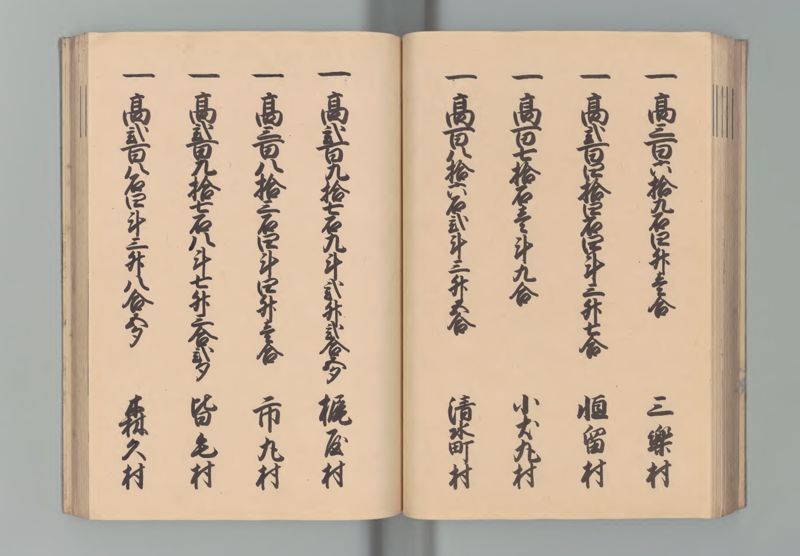 一 高三百六拾九石四升壱合 三樂村
一 高弐百四拾四石四斗三升七合 恒留村
一 高百七拾石壱斗九合 小犬丸村
一 高百八拾六石弐斗三升五合 清水町村
一 高弐百九拾七石九斗弐升弐合五夕 梶屋村
一 高三百八拾三石四斗四升壱合 市丸村
一 高弐百九拾七石八斗七升三合弐夕 皆毛村
一 高弐百八石四斗三升八合五夕 森久村